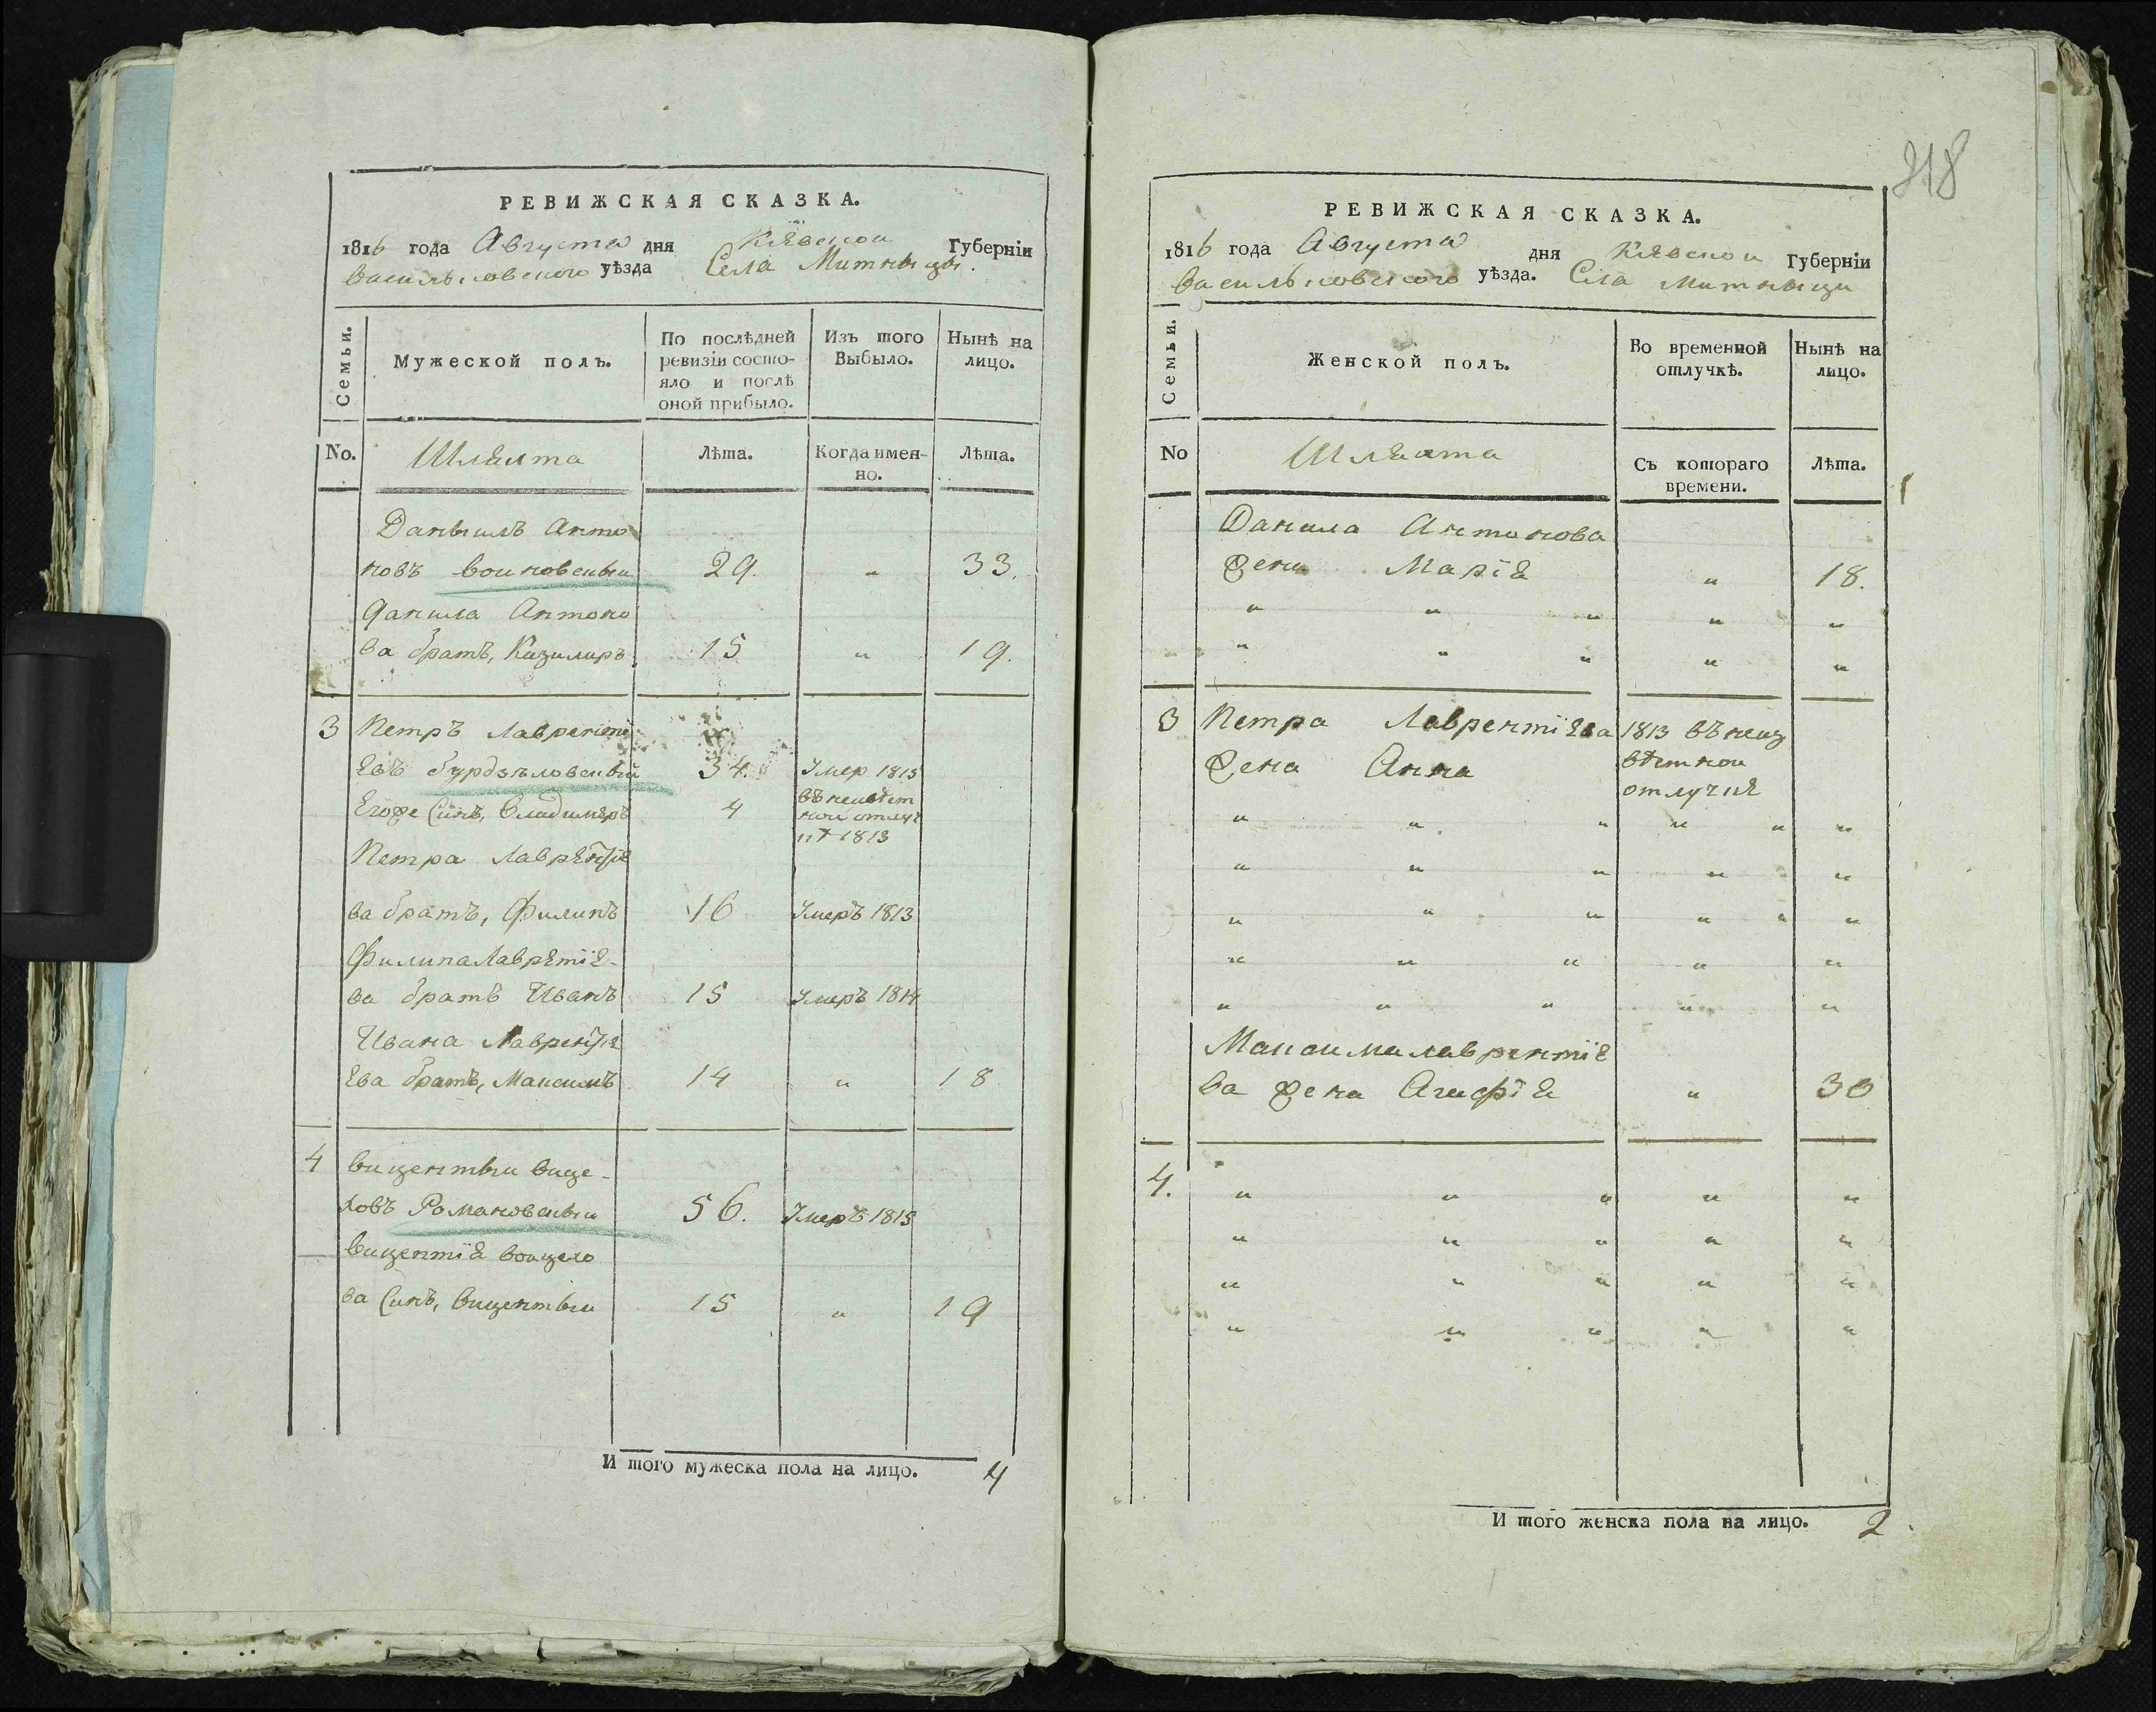 РЕВИЖСКАЯ СКАЗКА.
1816 года Августа дня Кіевской Губерніи
Васильковского уѣзда Села Митницы.
Семьи.
Мужеской полъ.
По послѣдней ревизіи состо-
яло и послѣ
оной прибыло.
Изъ того
Выбыло.
Нынѣ на
лицо.
No.
Шляхта
Лѣта.
Когда имен-
но.
Лѣта.
Даныилъ Анто
новъ Войновскый 29. " 33.
Данила Антоно
ва братъ, Казимиръ 15 " 19.
3 Петръ Лавренті
евъ Бурдзѣловскый 34. Умер 1815
Егоже Синъ, Владимѣръ 4 въ неизвѣст
ной отлуч
кѣ 1813
Петра Лаврентіе
ва братъ, Филипъ 16 Умеръ 1813
Филипа Лаврѣтіе-
ва братъ Иванъ 15 Умеръ 1814
Ивана Лаврентіе
ева братъ, Максимъ 14 " 18
4 Вицентый Войце-
ховъ Романовскый 56. Умеръ 1815
Вицентіѧ Войцехо
ва Синъ, Вицентый 15 " 19
И того мужеска пола на лицо. 4
318
РЕВИЖСКАЯ СКАЗКА.
1816 года Августа дня Кіевской Губерніи
Васильковского уѣзда. Села Митници
Семьи.
Женской полъ.
Во временной
отлучкѣ.
Нынѣ на
лицо.
No
Шляхта
Съ котораго
времени.
Лѣта.
Данила Антонова
Жена Маріѧ " 18.
" " " " "
" " " " "
3 Петра Лаврентіева 1813 въ неиз
Жена Анна вѣстной
отлучкѣ
" " " " " "
" " " " "
" " " " " "
" " " " "
" " " " "
Максима Лаврентіе
ва Жена Агафіѧ " 30
4. " " " " "
" " " " "
" " " " "
" " " " "
И того женска пола на лицо. 2